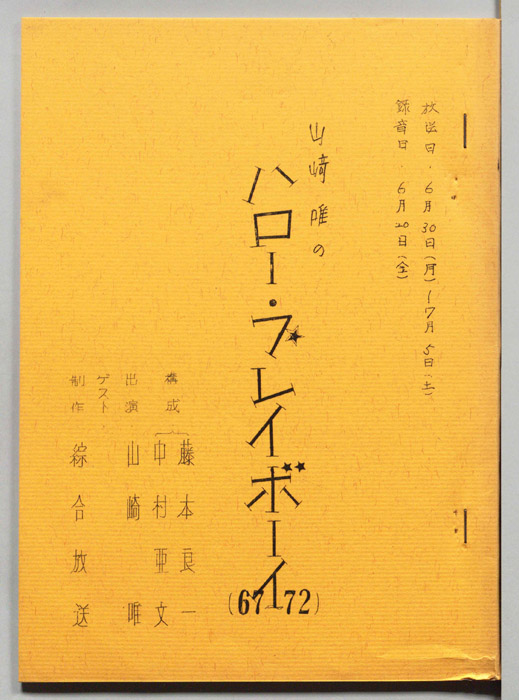 放送日．6月30日(月)〜7月5日(土)
録音日　6月20日(金)
山崎唯の
ハロー・プレイボーイ
(67〜72)
構成　藤本良一
中村亜文
出演　山崎唯
ゲスト
制作　綜合放送